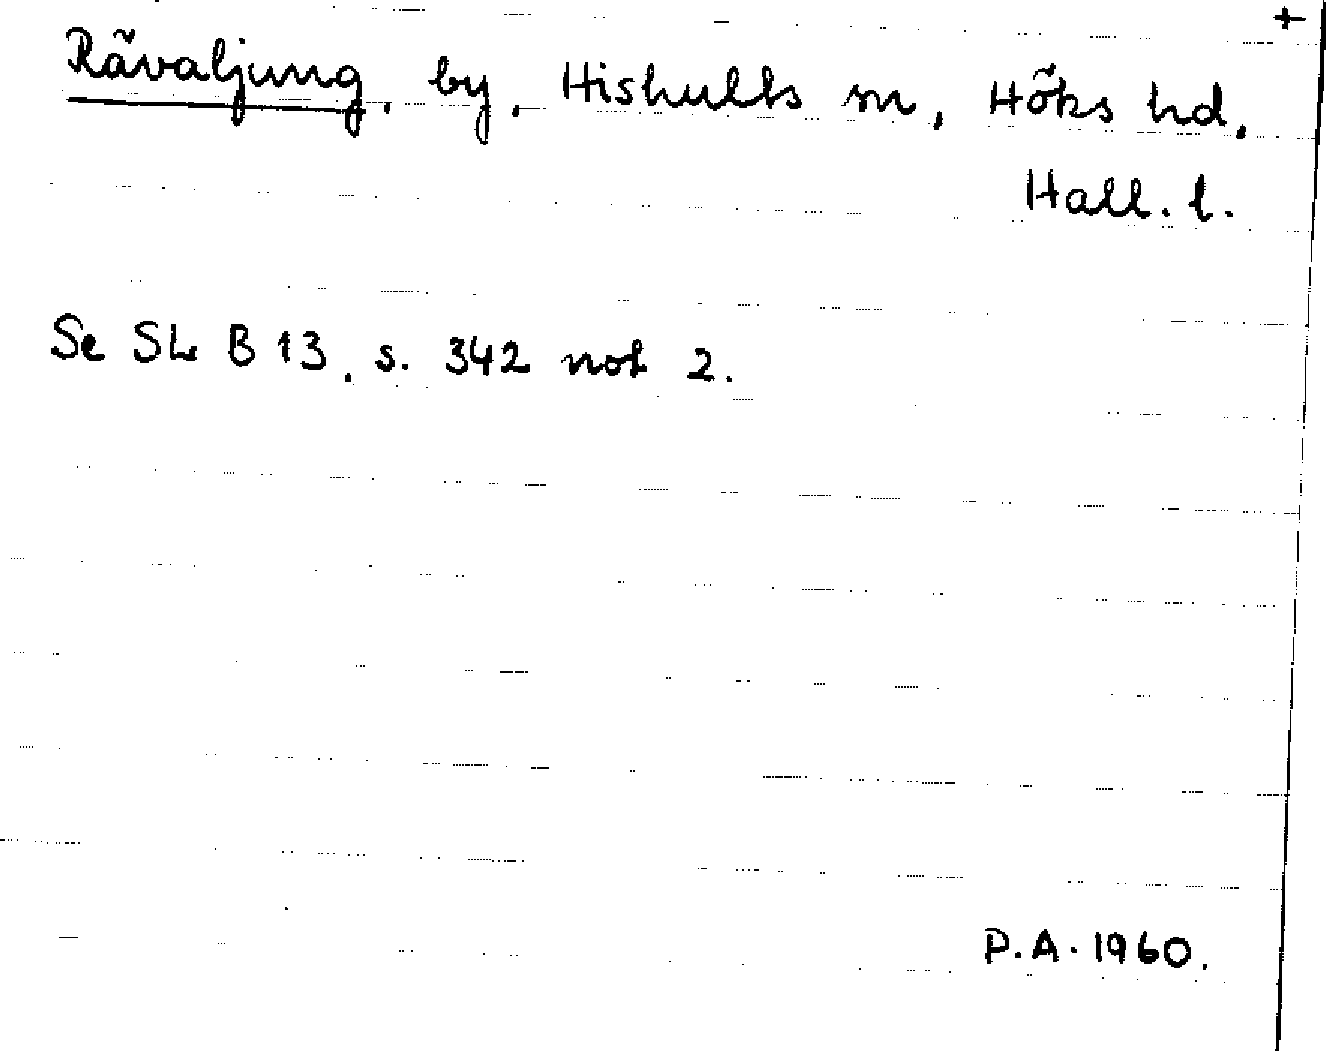 +
Rävaljung, by, Hishults sn, Höks hd,
Hall. l.
Se SL B 13, s. 342 not 2.
P.A. 1960.